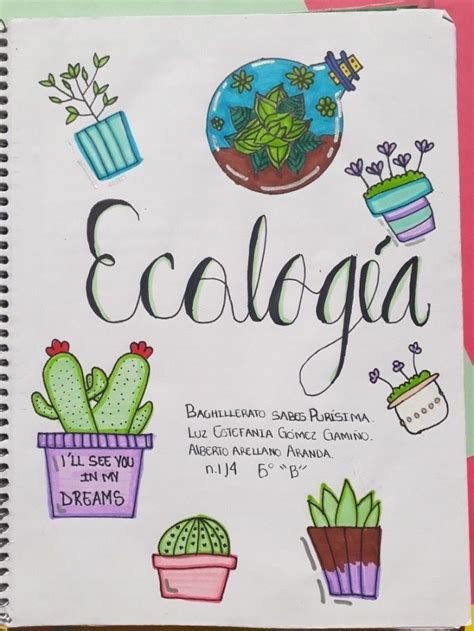 Ecología
I'LL SEE YOU
IN MY
DREAMS
BACHILLERATO SABES PURÍSIMA.
LUZ ESTEFANIA GÓMEZ GAMIÑO.
ALBERTO ARELLANO ARANDA.
n.l 14 5° "B"